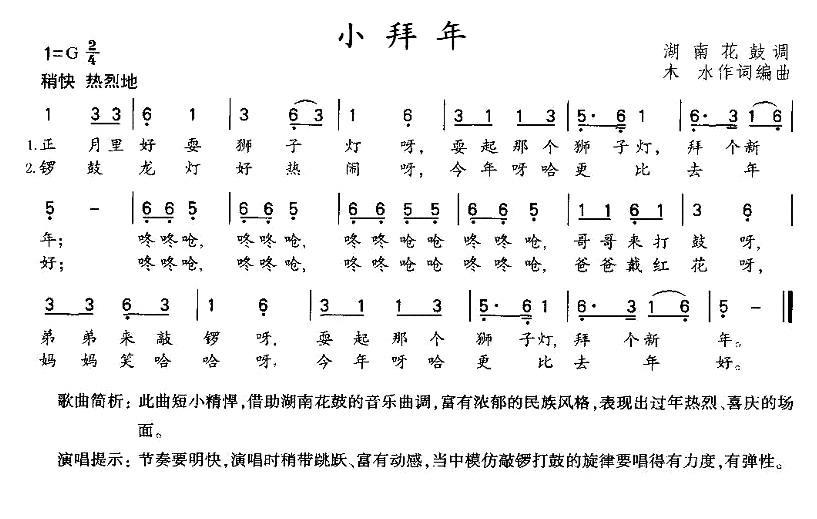 小拜年
1=G 2/4 湖南花鼓调
稍快 热烈地 木 水作词编曲
1 3 3 | 6 1 | 3 6 3 | 1 6 | 3 1 1 3 | 5· 6 1 | 6· 3 1 6 |
1.正 月里好耍狮子灯呀,耍起那个狮子灯,拜个新
2.锣鼓龙灯好热闹呀,今年呀哈更比去年
5 - | 6 6 5 | 6 6 5 | 6 6 5 5 | 6 6 5 | 1 1 6 1 | 3 6 |
年; 咚咚呛,咚咚呛,咚咚呛呛咚咚呛,哥哥来打鼓呀,
好; 咚咚呛,咚咚呛,咚咚呛呛咚咚呛,爸爸戴红花呀,
3 3 6 3 | 1 6 | 3 1 1 3 | 5· 6 1 | 6· 3 1 6 | 5 - ‖
弟弟来敲锣呀,耍起那个狮子灯,拜个新年。
妈妈笑哈哈呀,今年呀哈更比去年好。
歌曲简析:此曲短小精悍,借助湖南花鼓的音乐曲调,富有浓郁的民族风格,表现出过年热烈、喜庆的场
面。
演唱提示:节奏要明快,演唱时稍带跳跃、富有动感,当中模仿敲锣打鼓的旋律要唱得有力度,有弹性。